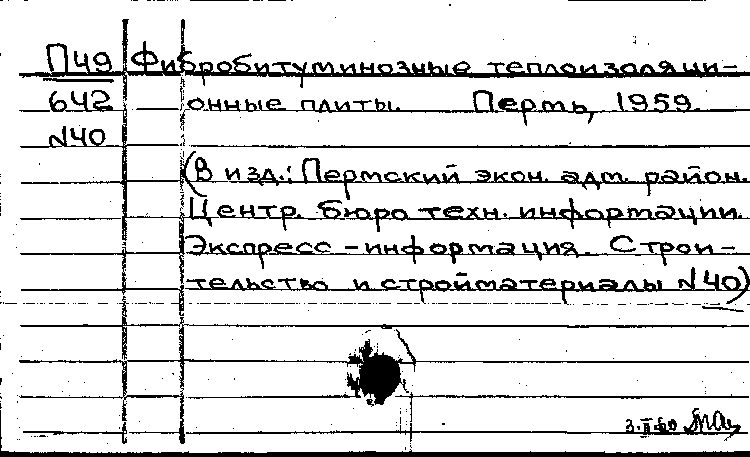 П49 Фибробитуминозные теплоизоляци-
642 онные плиты. Пермь, 1959.
N40
(В изд.: Пермский экон. адм. район.
Центр. бюро техн. информации.
Экспресс-информация. Строи-
тельство и стройматериалы N40)